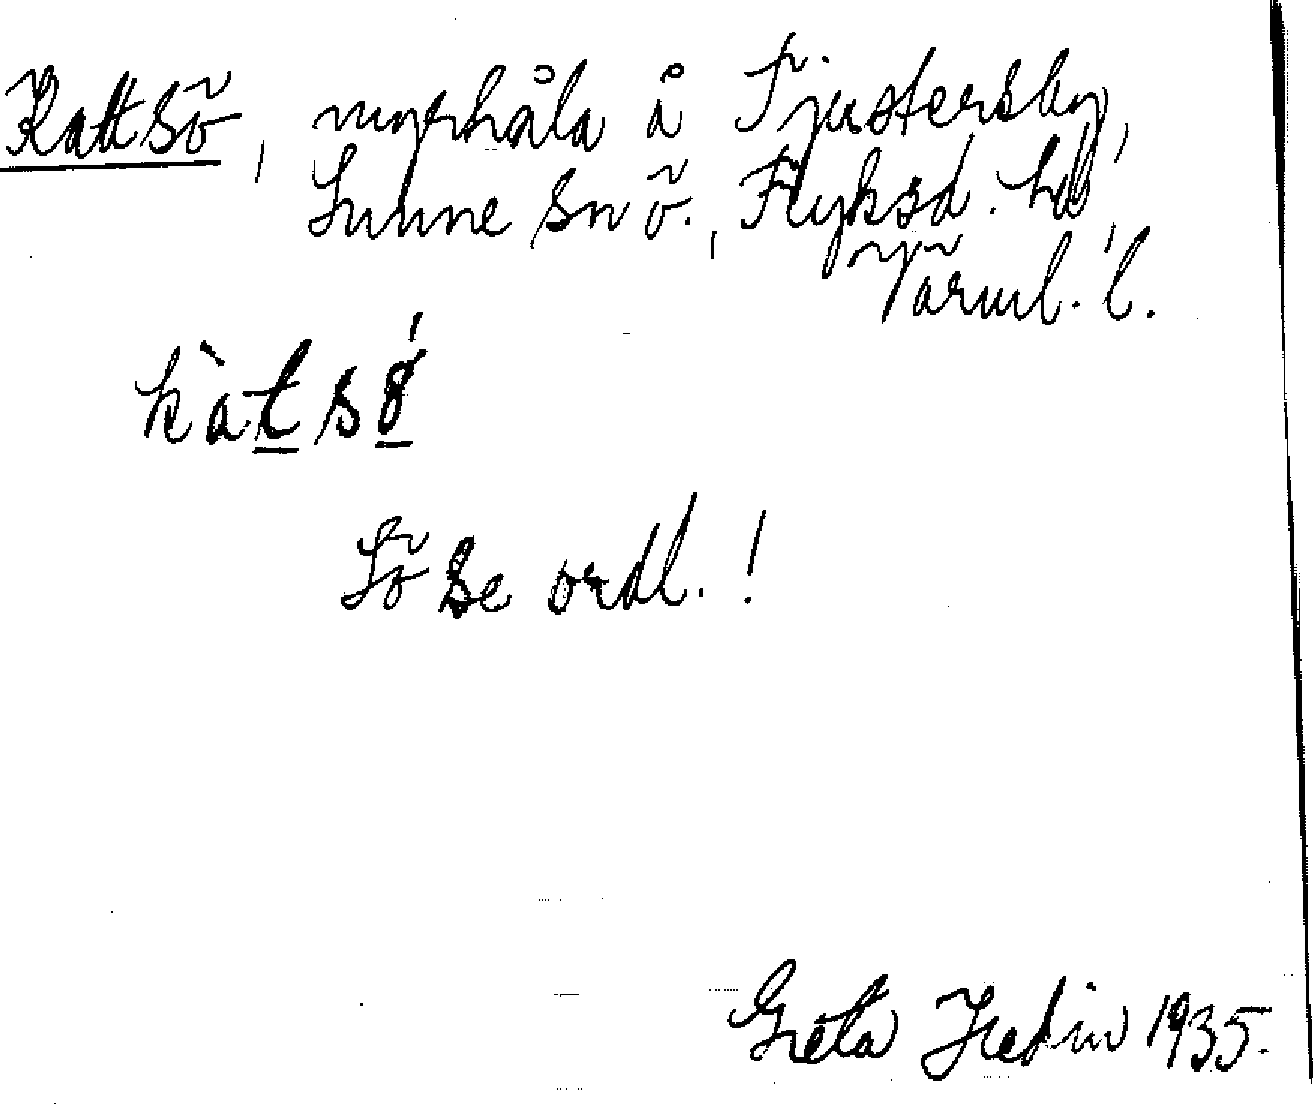 Kattsö, myrhåla å Tjustersby,
Sunne snö., Fryksd. hd,
Värml. l.
kàtsǿ
Sö se ordl.!
Greta Hedin 1935.